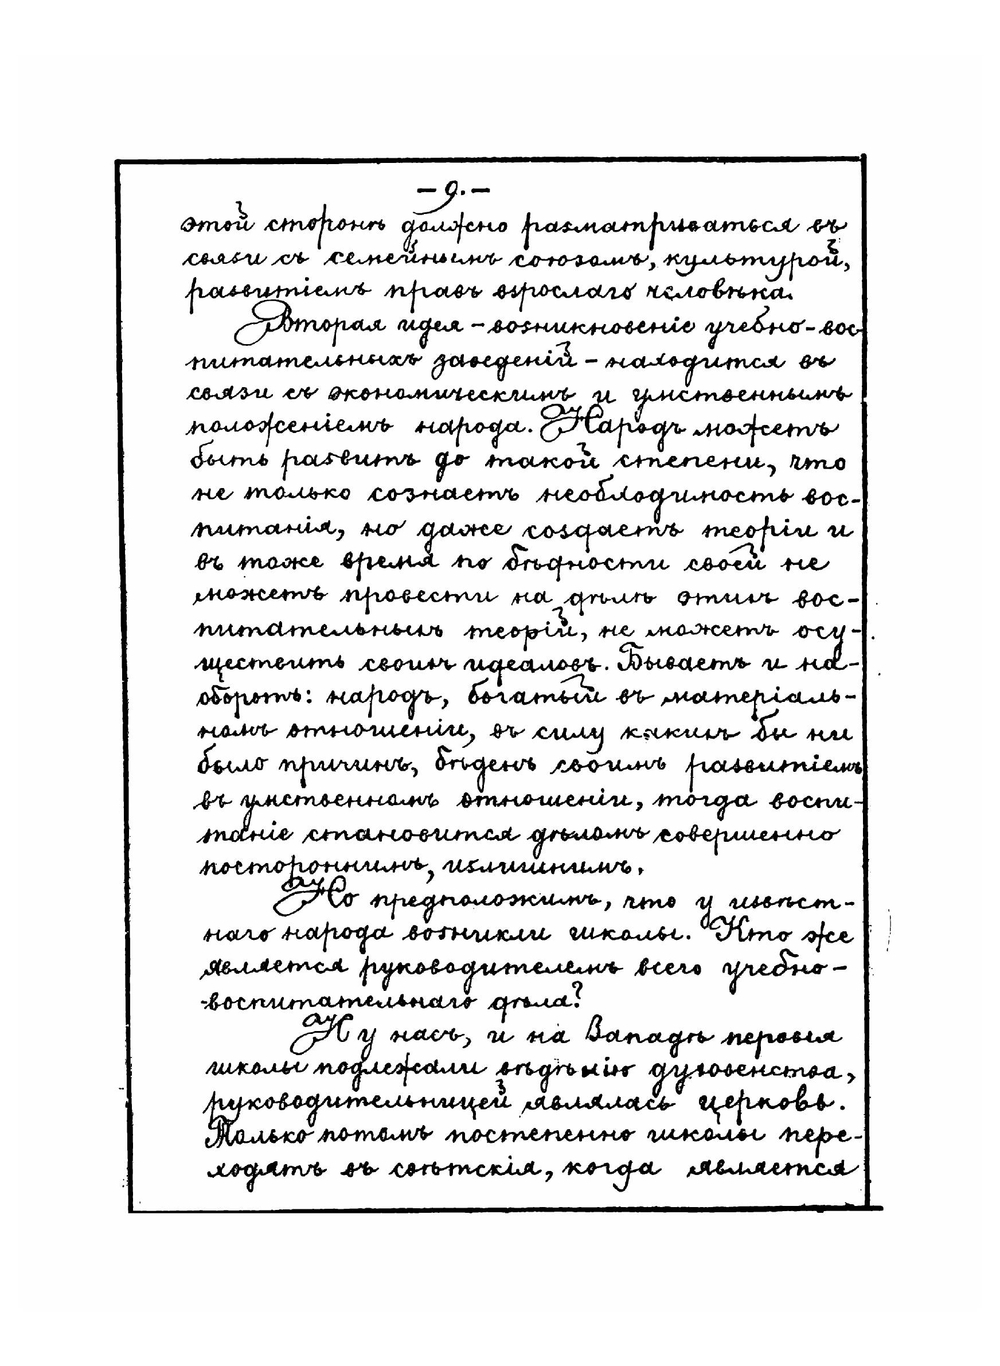 — 9. —
этой сторонѣ должно разматриваться въ
связи съ семейнымъ союзомъ, культурой,
развитіемъ правъ взрослаго человѣка.
Вторая идея – возникновеніе учебно-вос
питательныхъ заведеній – находится въ
связи съ экономическимъ и умственнымъ
положеніемъ народа. Народъ можетъ
быть развитъ до такой степени, что
не только сознаетъ необходимость вос-
питанія, но даже создаетъ теоріи и
въ тоже время по бѣдности своей не
можетъ провести на дѣлѣ этихъ вос-
питательныхъ теорій, не можетъ осу-
ществить своихъ идеаловъ. Бываетъ и на-
оборотъ: народъ, богатый въ матеріаль-
номъ отношеніи, въ силу какихъ бы ни
было причинъ, бѣденъ своимъ развитіемъ
въ умственномъ отношеніи, тогда воспи-
таніе становится дѣломъ совершенно
постороннимъ, излишнимъ.
Но предположимъ, что у извѣст-
наго народа возникли школы. Кто же
является руководителемъ всего учебно-
-воспитательнаго дѣла?
И у насъ, и на Западѣ первыя
школы подлежали вѣдѣнію духовенства,
руководительницей являлась церковь.
Только потомъ постепенно школы пере-
ходятъ въ свѣтскія, когда является